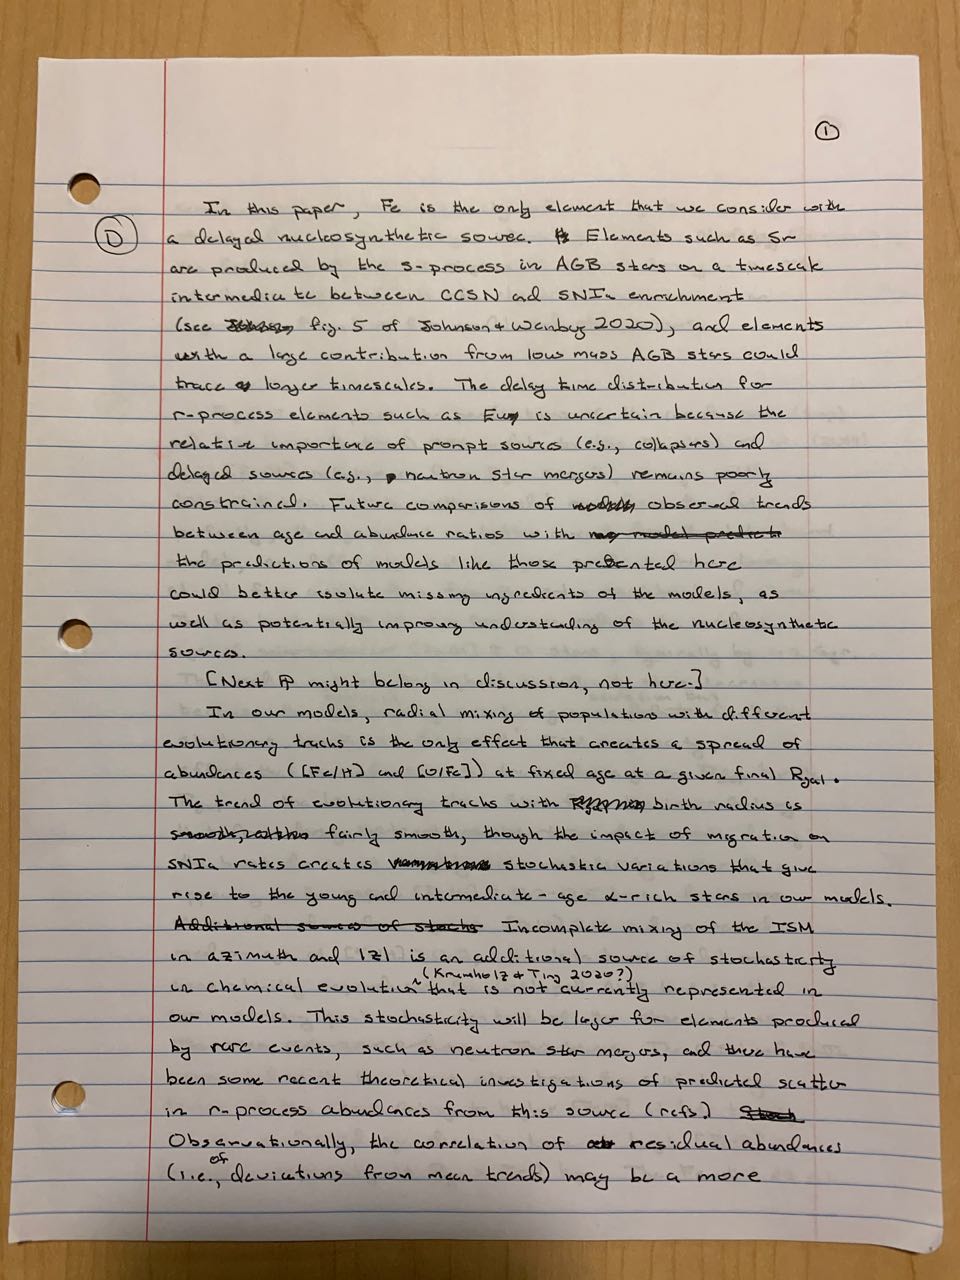 ①
In this paper, Fe is the only element that we consider with
D
a delayed nucleosynthetic source. Elements such as Sr
are produced by the s-process in AGB stars on a timescale
intermediate between CCSN and SNIa enrichment
(see fig. 5 of Johnson & Weinberg 2020), and elements
with a large contribution from low mass AGB stars could
trace longer timescales. The delay time distribution for
r-process elements such as Eu is uncertain because the
relative importance of prompt sources (e.g., collapsars) and
delayed sources (e.g., neutron star mergers) remains poorly
constrained. Future comparisons of observed trends
between age and abundance ratios with model predicti
the predictions of models like those presented here
could better isolate missing ingredients of the models, as
well as potentially improving understanding of the nucleosynthetic
sources.
[Next ¶ might belong in discussion, not here.]
In our models, radial mixing of populations with different
evolutionary tracks is the only effect that creates a spread of
abundances ([Fe/H] and [O/Fe]) at fixed age at a given final Rgal.
The trend of evolutionary tracks with birth radius is
fairly smooth, though the impact of migration on
SNIa rates creates stochastic variations that give
rise to the young and intermediate-age α-rich stars in our models.
Additional sources of stocha Incomplete mixing of the ISM
in azimuth and |z| is an additional source of stochasticity
(Krumholz & Ting 2020?)
in chemical evolution ^ that is not currently represented in
our models. This stochasticity will be larger for elements produced
by rare events, such as neutron star mergers, and there have
been some recent theoretical investigations of predicted scatter
in r-process abundances from this source (refs)
Observationally, the correlation of residual abundances
of
(i.e., deviations from mean trends) may be a more